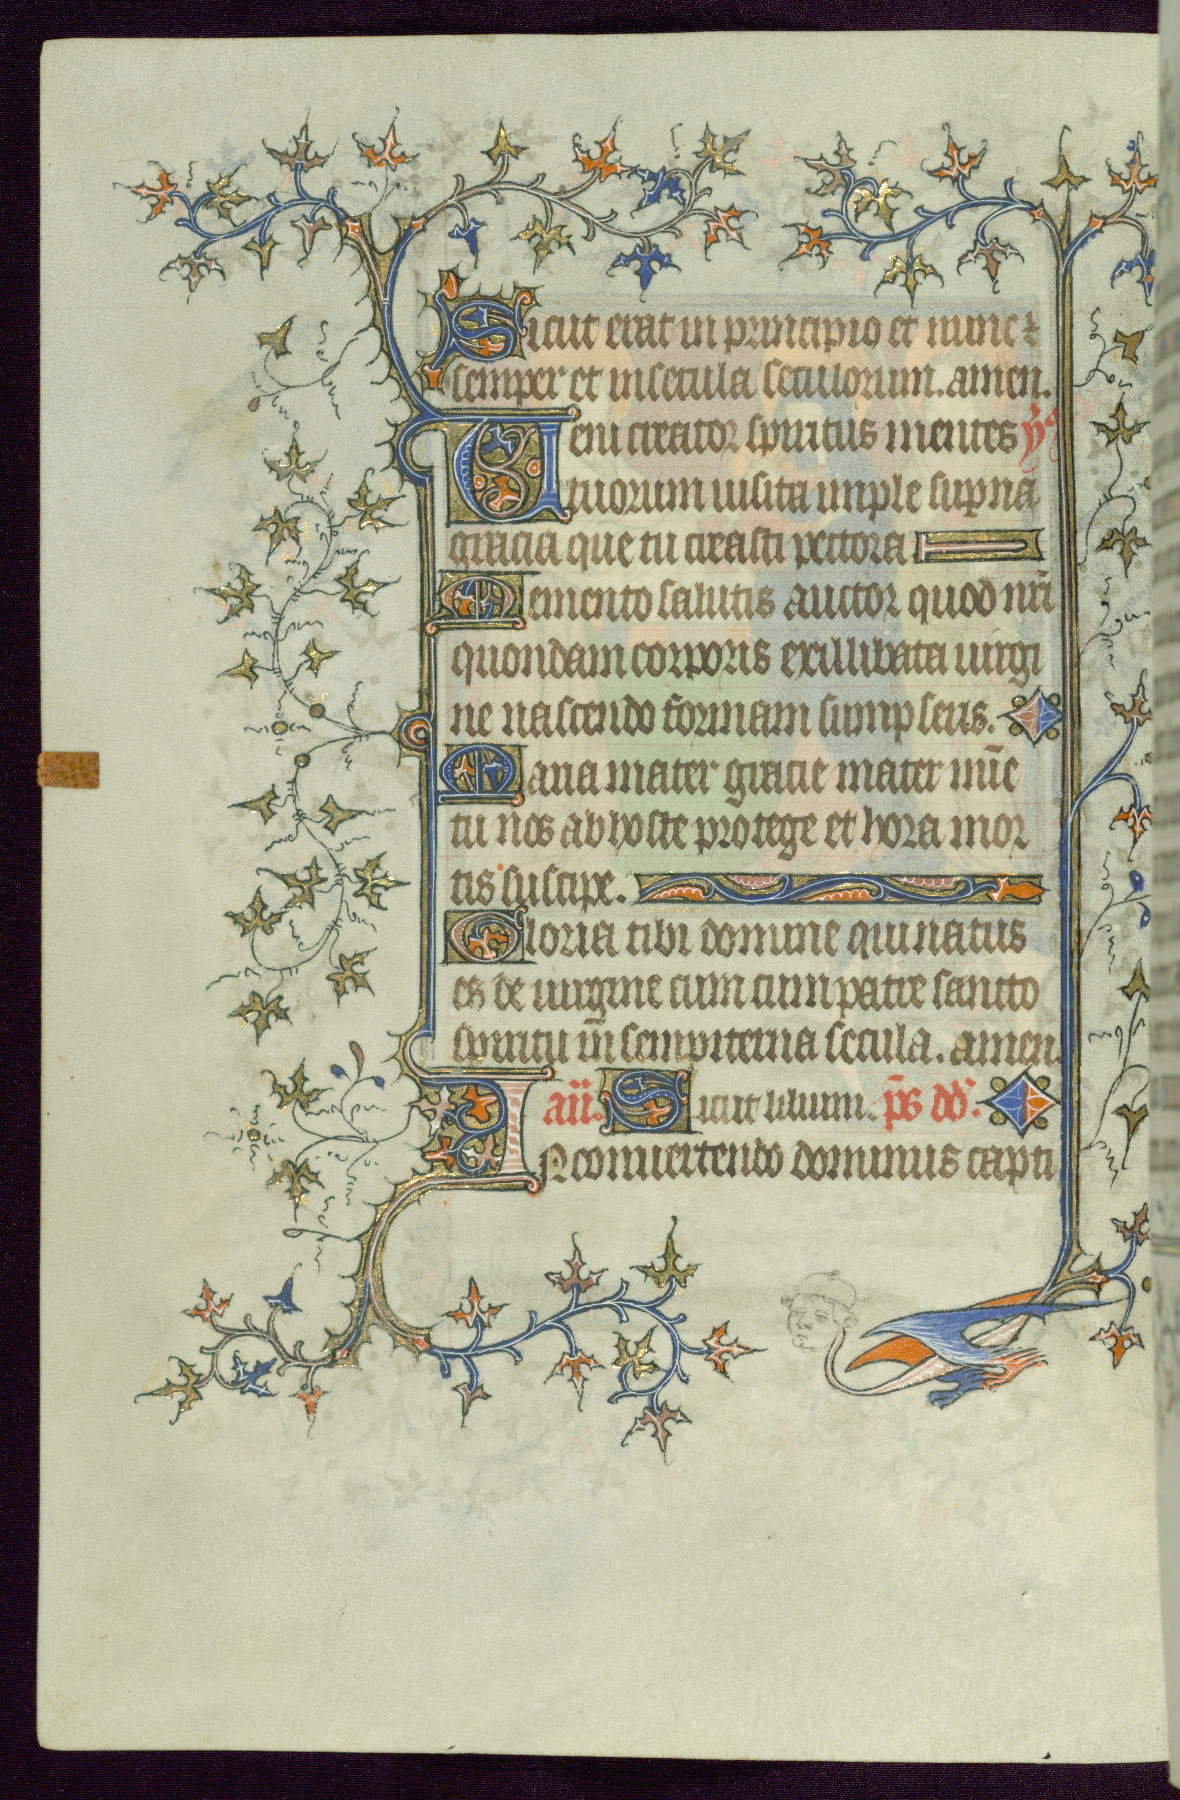 Sicut erat in principio et nunc ⁊
semper et in secula seculorum. amen.
Ueni creator spiritus mentes ẏᵒ
tuorum uisita imple sup̱na
gracia que tu creasti pectora
Memento salutis auctor quod nr̄i
quondam corporis exillibata uirgi
ne nascendo formam sumpseris.
Maria mater gracie mater mīe
tu nos ab hoste protege et hora mor
tis suscipe.
Gloria tibi domine qui natus
es de uirgine cum cum patre sancto
spiritu in sempiterna secula. amen.
añ. Sicut lilium. p̄s dd̄.
IN conuertendo dominus capti